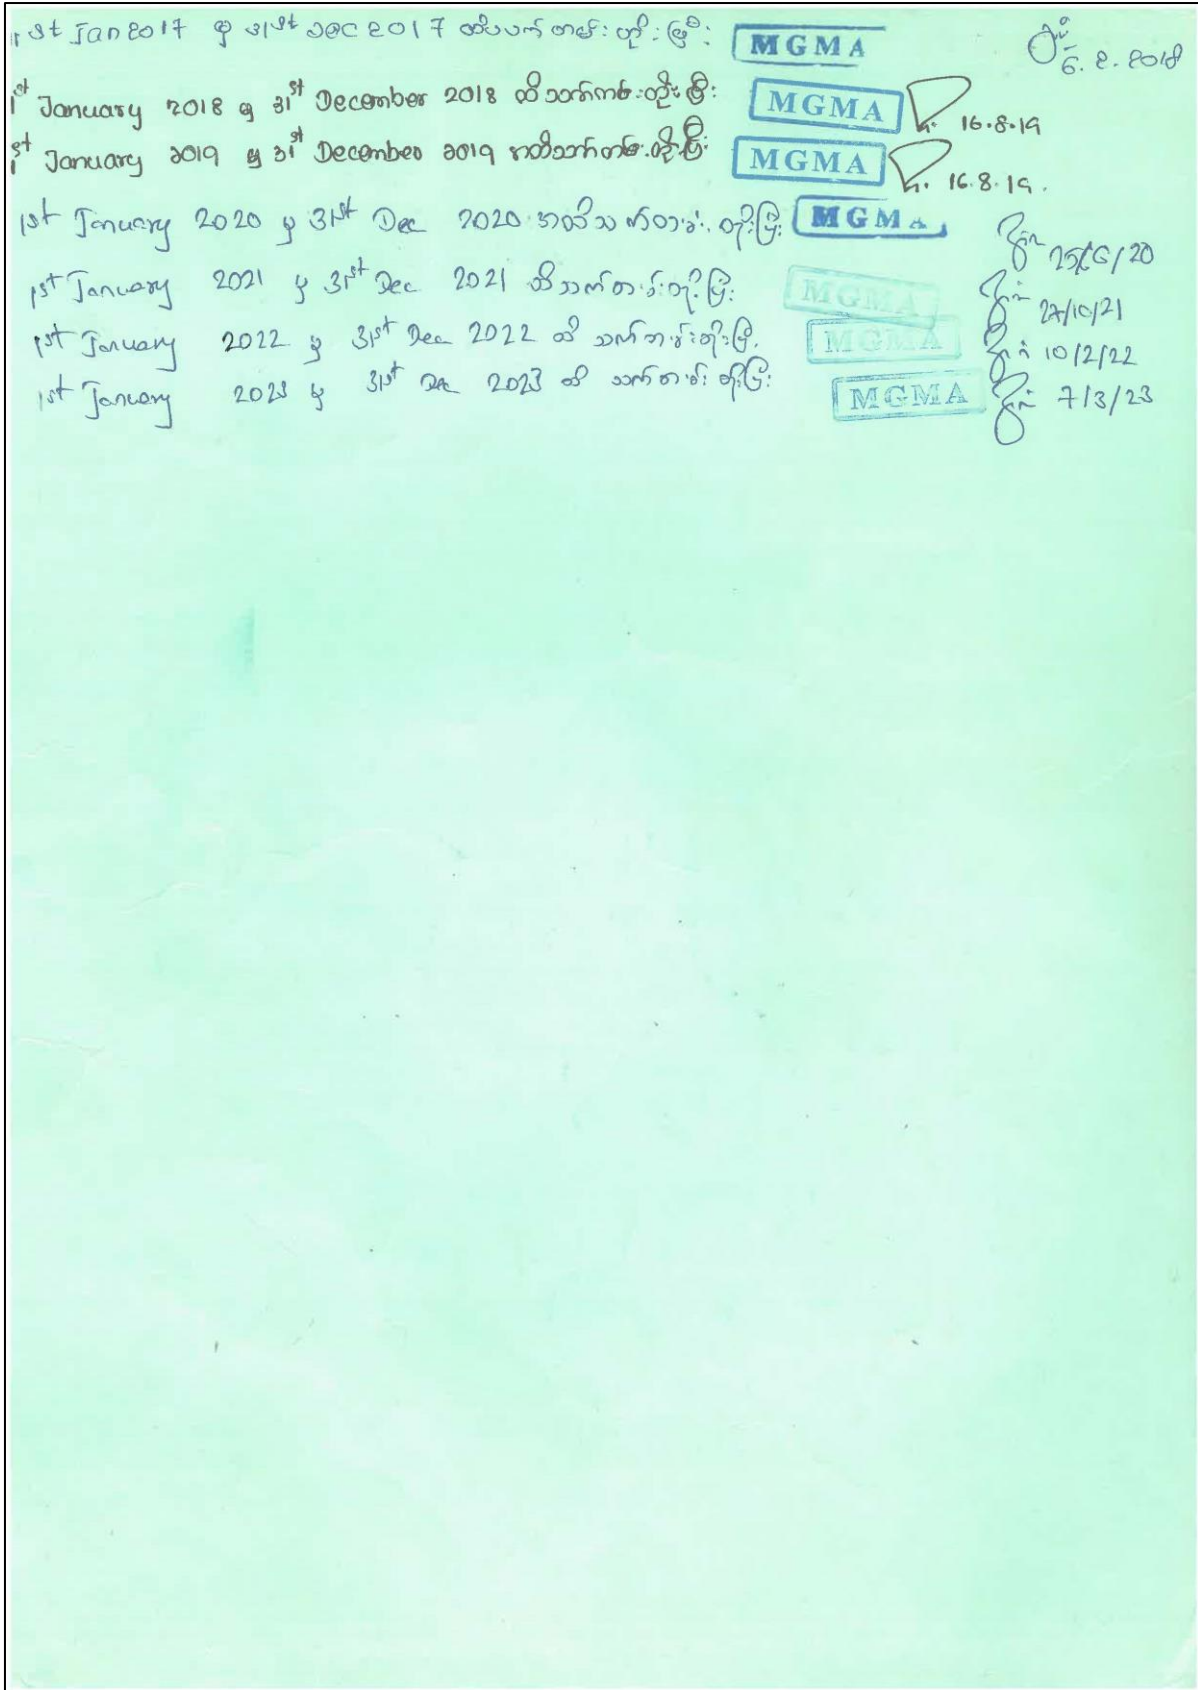 1st Jan 2017 မှ 31st Dec 2017 ထိ သက်တမ်းတိုးပြီး MGMA 6.2.2018
1st January 2018 မှ 31st December 2018 ထိ သက်တမ်းတိုးပြီး MGMA 16.8.19
1st January 2019 မှ 31st December 2019 အထိသက်တမ်းတိုးပြီး MGMA 16.8.19.
1st January 2020 မှ 31st Dec 2020 အထိသက်တမ်းတိုးပြီး MGMA /20
1st January 2021 မှ 31st Dec 2021 ထိ သက်တမ်းတိုးပြီး MGMA 27/10/21
1st January 2022 မှ 31st Dec 2022 ထိ သက်တမ်းတိုးပြီး MGMA 10/2/22
1st January 2023 မှ 31st Dec 2023 ထိ သက်တမ်း တိုးပြီး MGMA 7/3/23